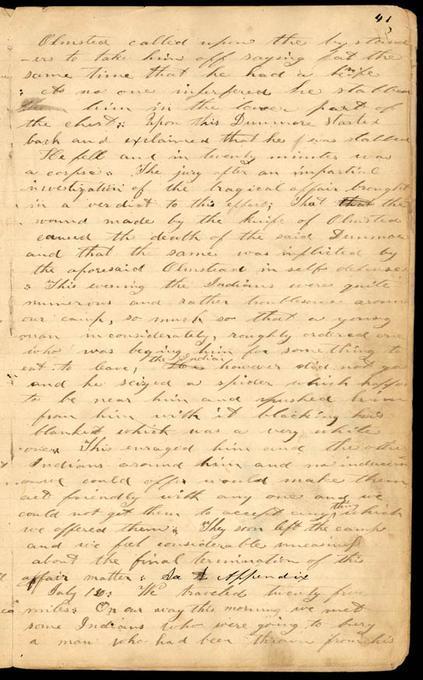 41
Olmsted called upon the bystand
-ers to take him off saying at the
same time that he had a knife
: As no one interfered he stabbed
him in the lower part of
the chest; Upon this Dunmore started
back and exclaimed that he was stabbed
He fell and in twenty minutes was
a corpse: The jury after an impartial
investigation of the tragical affair brought
in a verdict to this effect; That that the
wound made by the knife of Olmsted
caused the death of the said Dunmore
and that the same was inflicted by
the aforesaid Olmstead in self defense
: This evening the Indians were quite
numerous and rather troublesome around
our camp, so much so that a young
man inconsiderately, roughly ordered one
who was begging him for something to
eat to leave, the Indian however did not go
and he seized a spider which happe
to be near him and pushed him
from him with it blacking his
blanket which was a very white
one: This enraged him and the other
Indians around him and no induce
ment could offer would make them
act friendly with any one and we
could not get them to accept any thing which
we offered them: They soon left the camp
and we felt considerable uneasiness
about the final termination of this
affair matter: Appendix
July 12: We traveled twenty five
miles: On our way this morning we met
some Indians who were going to bury
a man who had been thrown from his